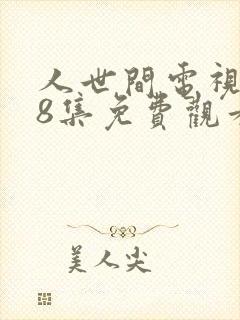 人世間電視
8集免費觀看
美人尖